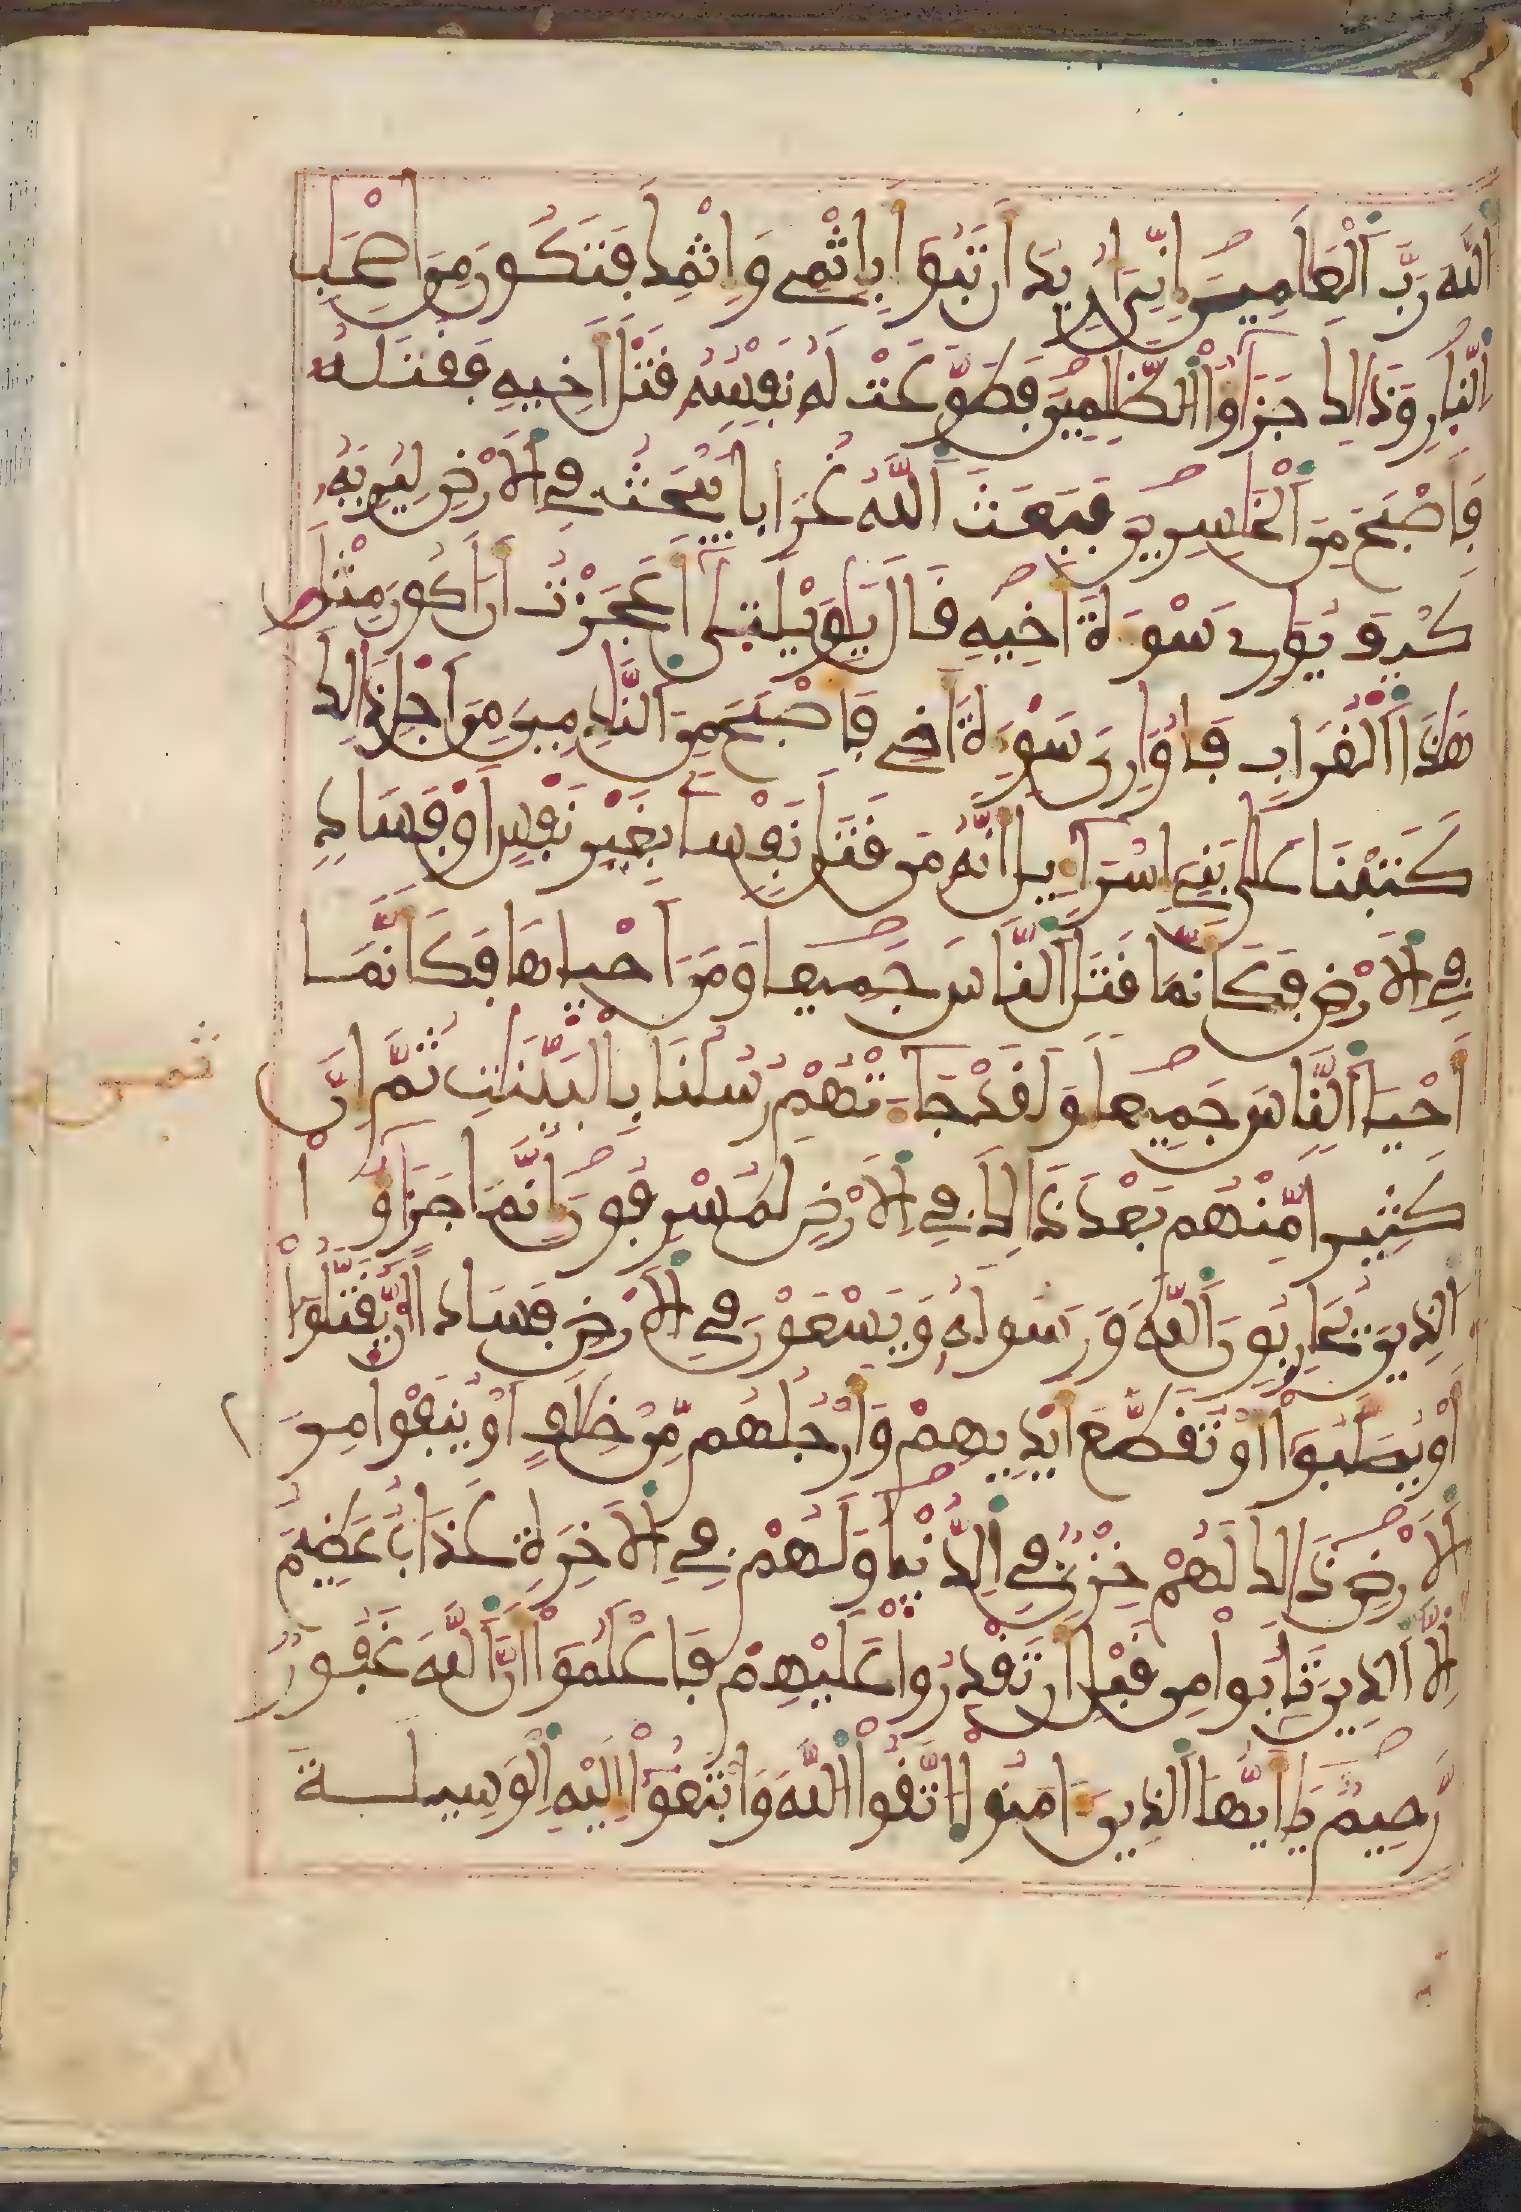 اَ۬للَّهَ رَبَّ اَ۬لْعَٰلَمِينَ إِنِّيَ أُرِيدُ أَن تَبُوٓأَ بِإِثْمِے وَإِثْمِكَ فَتَكُونَ مِنَ اَصْحَٰبِ
اِ۬لنّ۪ارِ وَذَٰلِكَ جَزَٰٓؤُاْ اُ۬لظَّٰلِمِينَ فَطَوَّعَتْ لَهُۥ نَفْسُهُۥ قَتْلَ أَخِيهِ فَقَتَلَهُۥ
فَأَصْبَحَ مِنَ اَ۬لْخَٰسِرِينَ فَبَعَثَ اَ۬للَّهُ غُرَاباٗ يَبْحَثُ فِے اِ۬لَارْضِ لِيُرِيَهُۥ
كَيْفَ يُوَٰرِے سَوْءَةَ أَخِيهِ قَالَ يَٰوَيْلَت۪يٰٓ أَعَجَزْتُ أَنَ اَكُونَ مِثْلَ
هَٰذَا اَ۬لْغُرَابِ فَأُوَٰرِيَ سَوْءَةَ أَخِے فَأَصْبَحَ مِنَ اَ۬لنَّٰدِمِينَ مِنَ اَجْلِ ذَٰلِكَ
كَتَبْنَا عَلَىٰ بَنِےٓ إِسْرَآءِيلَ أَنَّهُۥ مَن قَتَلَ نَفْساَۢ بِغَيْرِ نَفْسٍ اَوْ فَسَادٖ
فِے اِ۬لَارْضِ فَكَأَنَّمَا قَتَلَ اَ۬لنَّاسَ جَمِيعاٗ وَمَنَ اَحْي۪اهَا فَكَأَنَّمَآ
أَحْيَا اَ۬لنَّاسَ جَمِيعاٗ وَلَقَدْ جَآءَتْهُمْ رُسُلُنَا بِالْبَيِّنَٰتِ ثُمَّ إِنَّ
كَثِيراٗ مِّنْهُم بَعْدَ ذَٰلِكَ فِے اِ۬لَارْضِ لَمُسْرِفُونَ إِنَّمَا جَزَٰٓؤُاْ
اُ۬لذِينَ يُحَارِبُونَ اَ۬للَّهَ وَرَسُولَهُۥ وَيَسْعَوْنَ فِے اِ۬لَارْضِ فَسَاداً اَنْ يُّقَتَّلُوٓاْ
أَوْ يُصَلَّبُوٓاْ أَوْ تُقَطَّعَ أَيْدِيهِمْ وَأَرْجُلُهُم مِّنْ خِلَٰفٍ اَوْ يُنفَوْاْ مِنَ
اَ۬لَارْضِ ذَٰلِكَ لَهُمْ خِزْيٞ فِے اِ۬لدُّنْي۪ا وَلَهُمْ فِے اِ۬لَاخِرَةِ عَذَابٌ عَظِيمٌ
اِلَّا اَ۬لذِينَ تَابُواْ مِن قَبْلِ أَن تَقْدِرُواْ عَلَيْهِمْ فَاعْلَمُوٓاْ أَنَّ اَ۬للَّهَ غَفُورٞ
رَّحِيمٞ يَٰٓأَيُّهَا اَ۬لذِينَ ءَامَنُواْ اُ۪تَّقُواْ اُ۬للَّهَ وَابْتَغُوٓاْ إِلَيْهِ اِ۬لْوَسِيلَةَ
ثمن